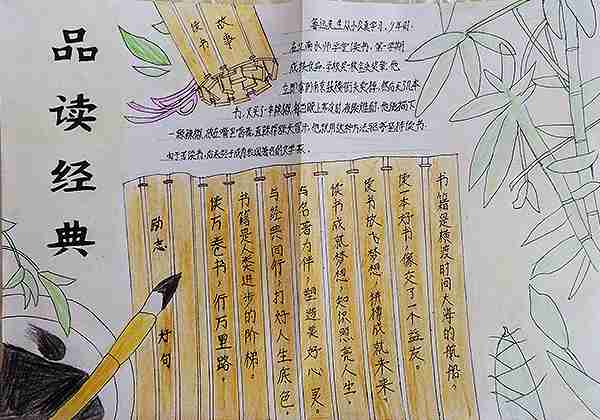 品读经典
读书
故事
鲁迅先生从小认真学习。少年时,
在江南水师学堂读书,第一学期
立即拿到南京鼓楼街头卖掉,然后买几本
书,又买了一串辣椒。每当晚上寒冷时,夜读难耐,他便摘下
一颗辣椒,放在嘴里嚼着,直辣得额头冒汗。他就用这种方法驱寒坚持读书
由于苦读书,后来终于成为我国著名的文学家。
书籍是横渡时间大海的航船。
读一本好书,像交了一个益友。
读书放飞梦想,拼搏成就未来。
读书成就梦想,知识照亮人生。
与名著为伴 塑造美好心灵。
与经典同行,打好人生底色。
书籍是人类进步的阶梯。
读万卷书,行万里路。
励志 好句